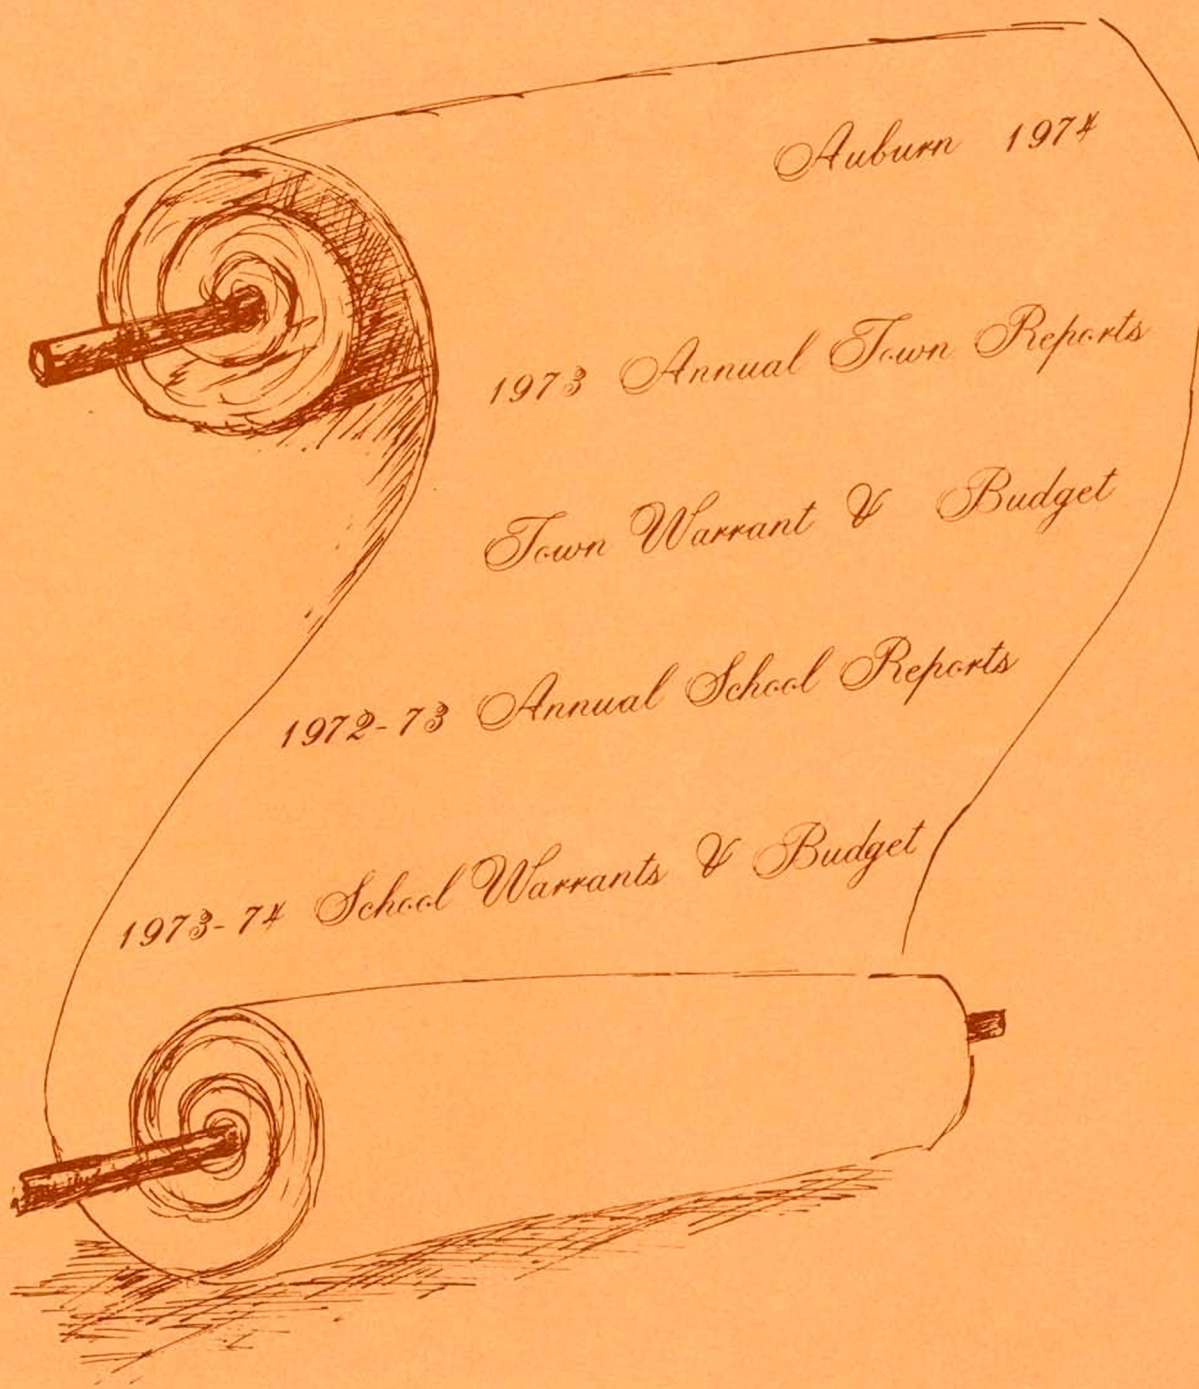 Auburn 1974
1973 Annual Town Reports
Town Warrant & Budget
1972-73 Annual School Reports
1973-74 School Warrants & Budget